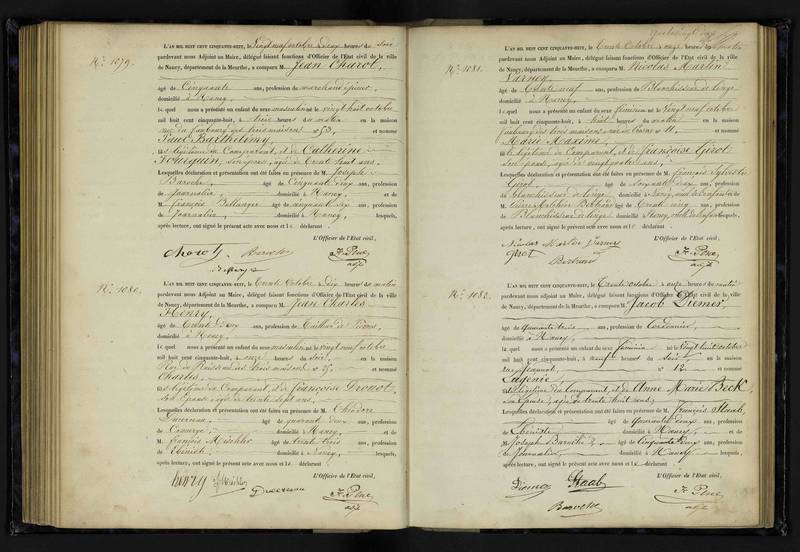 N.° 1079.
L'AN MIL HUIT CENT CINQUANTE-HUIT, le Vingt neuf octobre à deux heures du soir
pardevant nous Adjoint au Maire, délégué faisant fonctions d'Officier de l'Etat civil de la ville
de Nancy, département de la Meurthe, a comparu M. Jean Charot,
âgé de Cinquante ans, profession de marchand
domicilié à Nancy,
lequel nous a présenté un enfant du sexe masculin né le vingt huit octobre
mil huit cent cinquante-huit, à trois heures du matin en la maison
rue du faubourg des trois maisons n° 53, et nommé
Paul Barthélemy,
fils légitime du Comparant, et de Catherine
Fourquin, son épouse, âgée de trente huit ans.
Lesquelles déclaration et présentation ont été faites en présence de M. Joseph
Baroche, âgé de Cinquante deux ans, profession
de Journalier, domicilié à Nancy, et de
M. françois Bellanger âgé de cinquante six ans, profession
de Journalier, domicilié à Nancy, lesquels,
après lecture, ont signé le présent acte avec nous et le déclarant
L'Officier de l'Etat civil,
adjt
N.° 1080.
L'AN MIL HUIT CENT CINQUANTE-HUIT, le trente Octobre à dix heures du matin
pardevant nous Adjoint au Maire, délégué faisant fonctions d'Officier de l'Etat civil de la ville
de Nancy, département de la Meurthe, a comparu M. Jean Charles
Henry,
âgé de trente deux ans, profession de Tailleur de Pierres,
domicilié à Nancy,
lequel nous a présenté un enfant du sexe masculin né le vingt neuf octobre
mil huit cent cinquante-huit, à onze heures du soir, en la maison
Rue du Ruisseau des trois maisons n° 25, et nommé
Charles,
fils légitime du Comparant, et de françoise Drouot,
son épouse, âgée de trente sept ans.
Lesquelles déclaration et présentation ont été faites en présence de M. Théodore
âgé de quarante deux ans, profession
de Commerce, domicilié à Nancy, et de
M. françois Mechler âgé de trente trois ans, profession
de Ebéniste, domicilié à Nancy, lesquels,
après lecture, ont signé le présent acte avec nous et le déclarant
L'Officier de l'Etat civil,
henry
adjt
N.° 1081.
L'AN MIL HUIT CENT CINQUANTE-HUIT, le trente Octobre à onze heures du matin
pardevant nous Adjoint au Maire, délégué faisant fonctions d'Officier de l'Etat civil de la ville
de Nancy, département de la Meurthe, a comparu M. Nicolas Martin
Varney,
âgé de trente neuf ans, profession de Blanchisseur de linge
domicilié à Nancy,
lequel nous a présenté un enfant du sexe féminin né le vingt neuf octobre
mil huit cent cinquante-huit, à huit heures du matin en la maison
faubourg des trois maisons n° 11, et nommé
Marie Maxime,
fille légitime du Comparant, et de françoise Girot
son épouse, âgée de vingt quatre ans,
Lesquelles déclaration et présentation ont été faites en présence de M. françois Sylvestre
Girot, âgé de soixante deux ans, profession
de Blanchisseur de linge, domicilié à Nancy, et de
M. Pierre Melchior Bertrand âgé de trente cinq ans, profession
de Blanchisseur de linge domicilié à Nancy, lesquels,
après lecture, ont signé le présent acte avec nous et le déclarant
L'Officier de l'Etat civil,
Nicolas Martin Varney
girot Bertrand
adjt
N.° 1082.
L'AN MIL HUIT CENT CINQUANTE-HUIT, le trente octobre à onze heures du matin
pardevant nous Adjoint au Maire, délégué faisant fonctions d'Officier de l'Etat civil de la ville
de Nancy, département de la Meurthe, a comparu M. Jacob Diemer,
âgé de Quarante trois ans, profession de Cordonnier,
domicilié à Nancy,
lequel nous a présenté un enfant du sexe féminin né le Vingt huit octobre
mil huit cent cinquante-huit, à neuf heures du soir en la maison
n° 12 et nommé
Eugénie,
fille légitime du Comparant, et de Anne Marie Beck,
son épouse, âgée de trente huit ans,
Lesquelles déclaration et présentation ont été faites en présence de M. françois Staab,
âgé de Quarante deux ans, profession
de Ebéniste, domicilié à Nancy, et de
M. Joseph âgé de Cinquante deux ans, profession
de Journalier, domicilié à Nancy, lesquels,
après lecture, ont signé le présent acte avec nous et le déclarant
L'Officier de l'Etat civil,
Diemer Staab
adjt